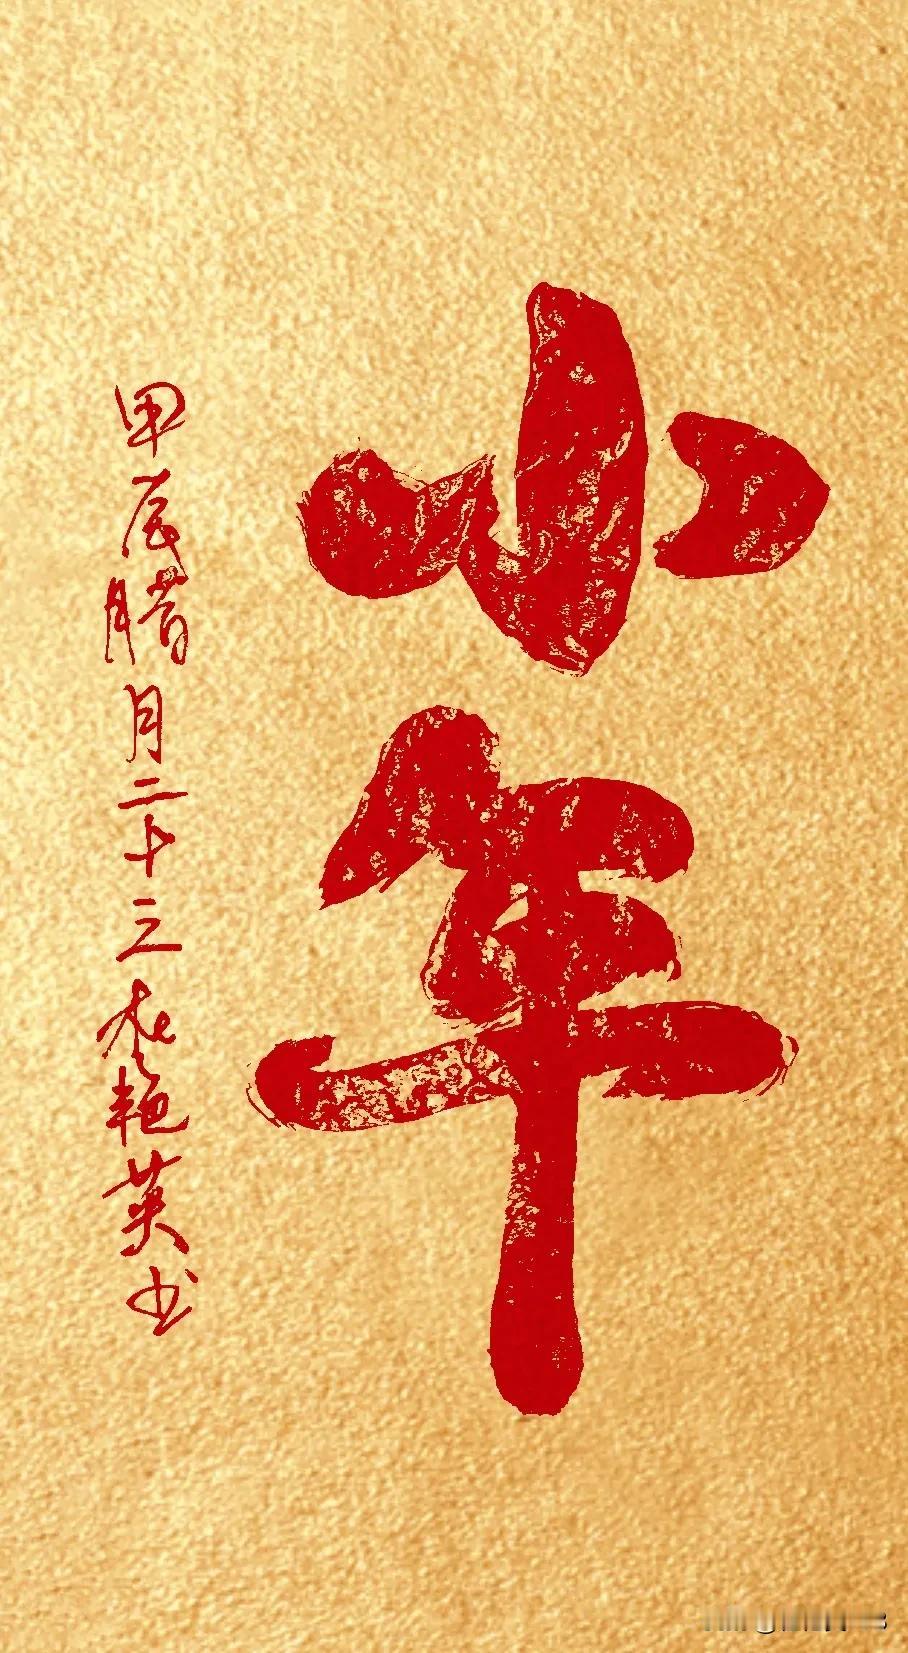 小年
甲辰腊月二十三 艳英书